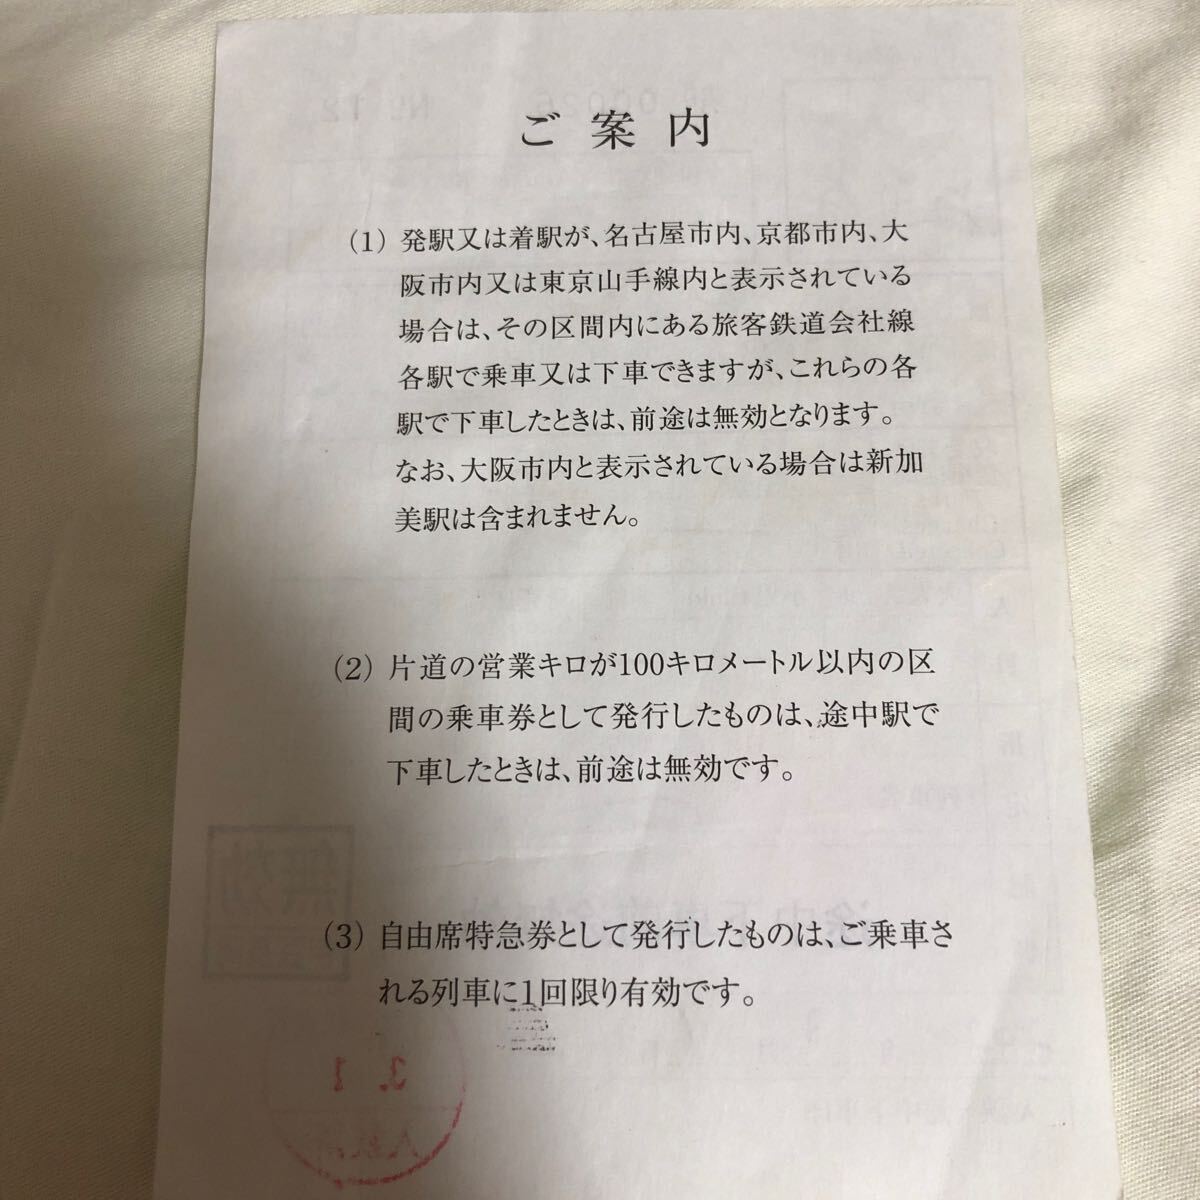 ご案内
(1) 発駅又は着駅が、名古屋市内、京都市内、大
阪市内又は東京山手線内と表示されている
場合は、その区間内にある旅客鉄道会社線
各駅で乗車又は下車できますが、これらの各
駅で下車したときは、前途は無効となります。
なお、大阪市内と表示されている場合は新加
美駅は含まれません。
(2) 片道の営業キロが100キロメートル以内の区
間の乗車券として発行したものは、途中駅で
下車したときは、前途は無効です。
(3) 自由席特急券として発行したものは、ご乗車さ
れる列車に1回限り有効です。
無効
3. 1